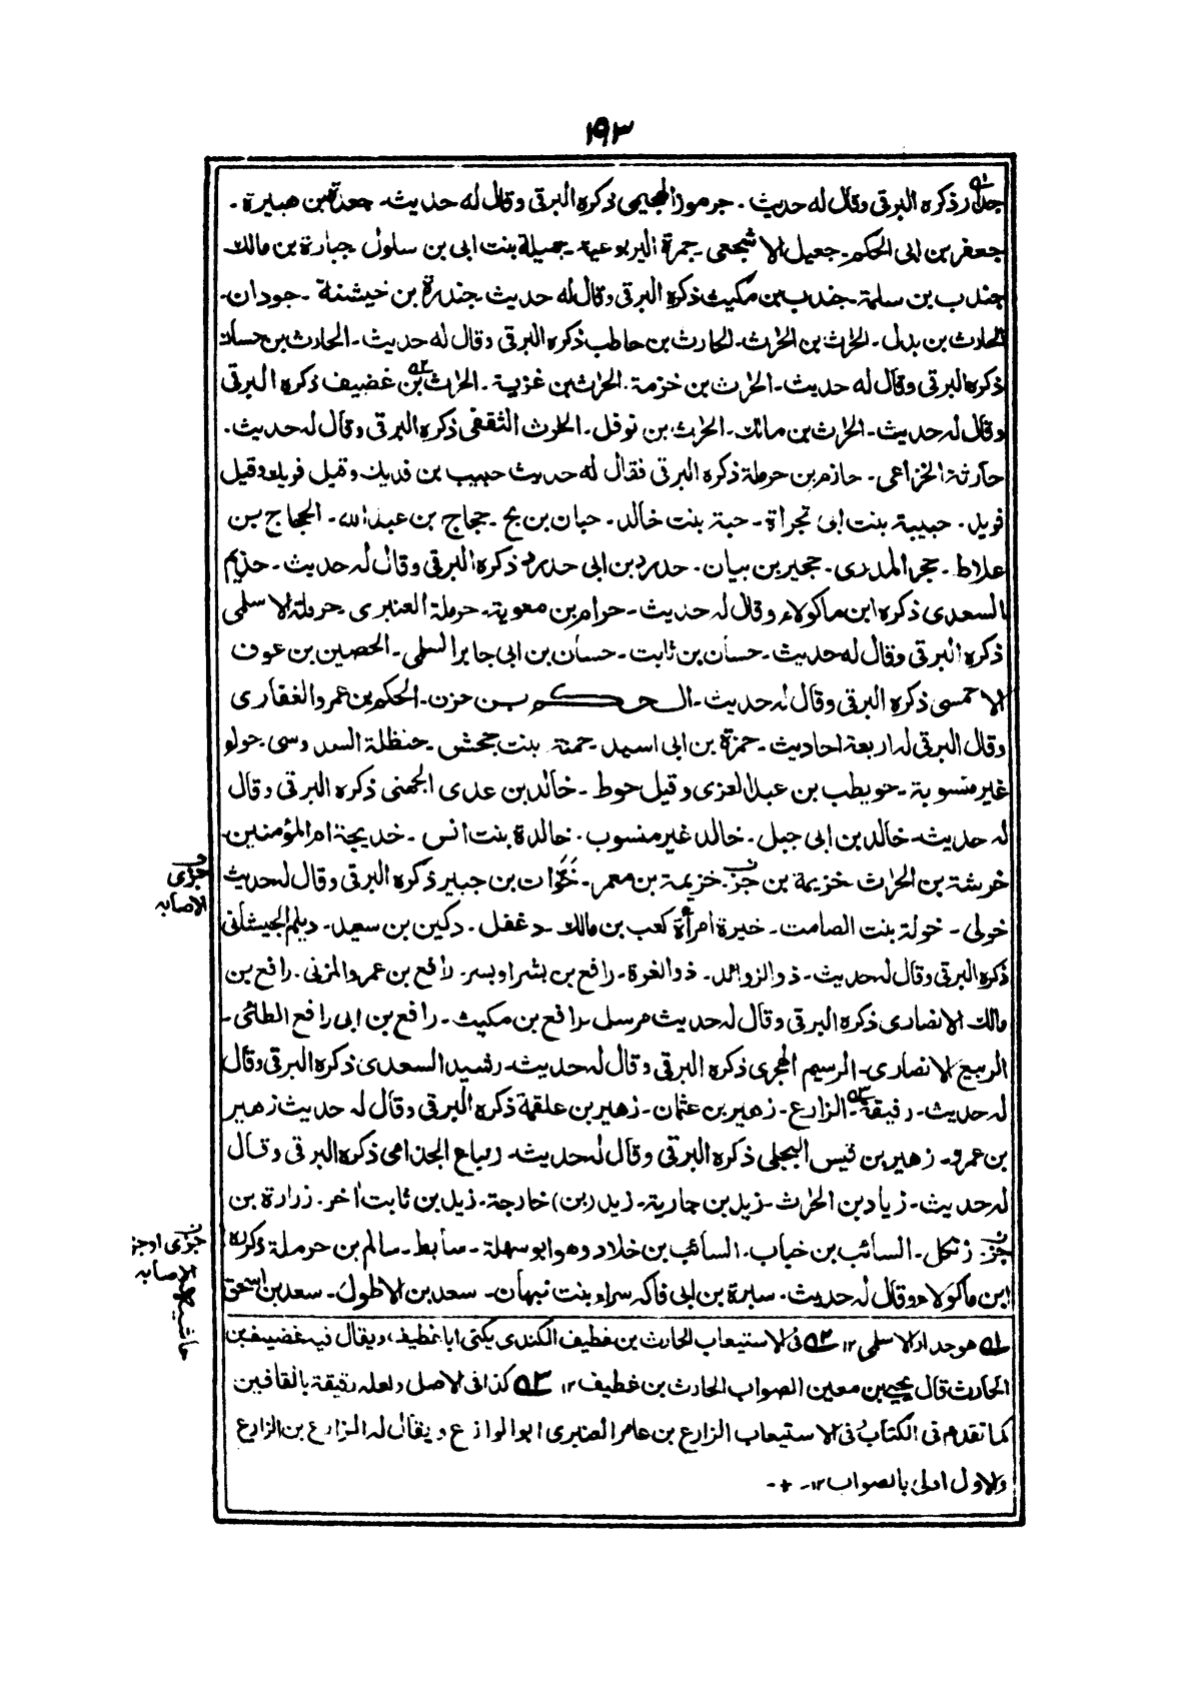 ١٩٣
جدار ذكره البرقى وقال له حديث ـ جرموز الهجيمى ذكره البرقى وقال له حديث ـ جعدة بن هبيرة ـ
جعفر بن ابى الحكم ـ جعيل الاشجعى ـ جمرة اليربوعية ـ جميلة بنت ابى بن سلول جبارة بن مالك
جندب بن سلمة ـ جندب بن مكيث ذكره البرقى وقال له حديث ـ جندرة بن خيشنة ـ جودان ـ
الحارث بن بدل ـ الحرث بن الحرث ـ الحارث بن حاطب ذكره البرقى وقال له حديث ـ الحارث بن حسان
ذكره البرقى وقال له حديث ـ الحرث بن خزمة ـ الحرث بن غزية ـ الحرث بن ٥٢ غضيف ذكره البرقى
وقال له حديث ـ الحرث بن مالك ـ الحرث بن نوفل ـ الحرث الثقفى ذكره البرقى وقال له حديث ـ
حارثة الخزاعى ـ حازم بن حرملة ذكره البرقى فقال له حديث حبيب بن فديك وقيل فويك وقيل
فويل ـ حبيبة بنت ابى تجراة ـ حبة بنت خالد ـ حبان بن بح ـ حجاج بن عبد الله ـ الحجاج بن
علاط ـ حجر المدرى ـ حجير بن بيان ـ حدرد بن ابى حدرد ذكره البرقى وقال له حديث ـ حذيم
السعدى ذكره ابن ماكولاء وقال له حديث ـ حرام بن معوية ـ حرملة العنبرى ـ حرملة الاسلمى
ذكره البرقى وقال له حديث ـ حسان بن ثابت ـ حسان بن ابى جابر السلمى ـ الحصين بن عوف
الاحمسى ذكره البرقى وقال له حديث ـ الحكم بن حزن ـ الحكم بن عمرو الغفارى
وقال البرقى له اربعة احاديث ـ حمزة بن ابى اسيد ـ حمنة بنت جحش ـ حنظلة السدوسى ـ حولو
غير منسوبة ـ حويطب بن عبد العزى وقيل حوط ـ خالد بن عدى الجهنى ذكره البرقى وقال
له حديث ـ خالد بن ابى جبل ـ خالد غير منسوب ـ خالدة بنت انس ـ خديجة ام المؤمنين ـ
خرشة بن الحرث خزيمة بن جز ـ خزيمة بن معمر ـ خوات بن جبير ذكره البرقى وقال له حديث
جزى
الاصابه
خولى ـ خولة بنت الصامت ـ خيرة امرأة كعب بن مالك ـ دغفل ـ دكين بن سعيد ـ ديلم الجيشانى
ذكره البرقى وقال له حديث ـ ذو الزوائد ـ ذو الغرة ـ رافع بن بشر او بسر ـ رافع بن عمرو المزنى ـ رافع بن
مالك الانصارى ذكره البرقى وقال له حديث مرسل ـ رافع بن مكيث ـ رافع بن ابى رافع الطائى ـ
الربيع الانصارى ـ الرسيم الهجرى ذكره البرقى وقال له حديث ـ رشيد السعدى ذكره البرقى وقال
له حديث ـ رفيقة ٥٣ ـ الزارع ـ زهير بن عثمان ـ زهير بن علقمة ذكره البرقى وقال له حديث زهير
بن عمرو ـ زهير بن قيس البجلى ذكره البرقى وقال له حديث ـ رباع الجذامى ذكره البرقى وقال
له حديث ـ زياد بن الحرث ـ زيد بن جارية ـ زيد (بن) خارجة ـ زيد بن ثابت اخر ـ زرارة بن
جز ـ زنكل ـ السائب بن خباب ـ السائب بن خلاد وهو ابو سهلة ـ سابط ـ سالم بن حرملة ذكره
جزى او جز
الاصابه
حاشيه
ابن ماكولاء وقال له حديث ـ سبرة بن ابى فاكه سراء بنت نبهان ـ سعد بن الاطول ـ سعد بن اسحق
٥١ هو جدار الاسلمى ١٢ ٥٢ فى الاستيعاب الحارث بن غطيف الكندى يكنى ابا غطيف ويقال فيه غضيف بن
الحارث قال يحيى بن معين الصواب الحارث بن غطيف ١٢ ٥٣ كذا فى الاصل ولعله رقيقة بالقافين
كما تقدم فى الكتاب فى الاستيعاب الزارع بن عامر العنبرى ابو الوازع ويقال له الزارع بن الزارع
والاول اولى بالصواب ١٢ ـ + ـ